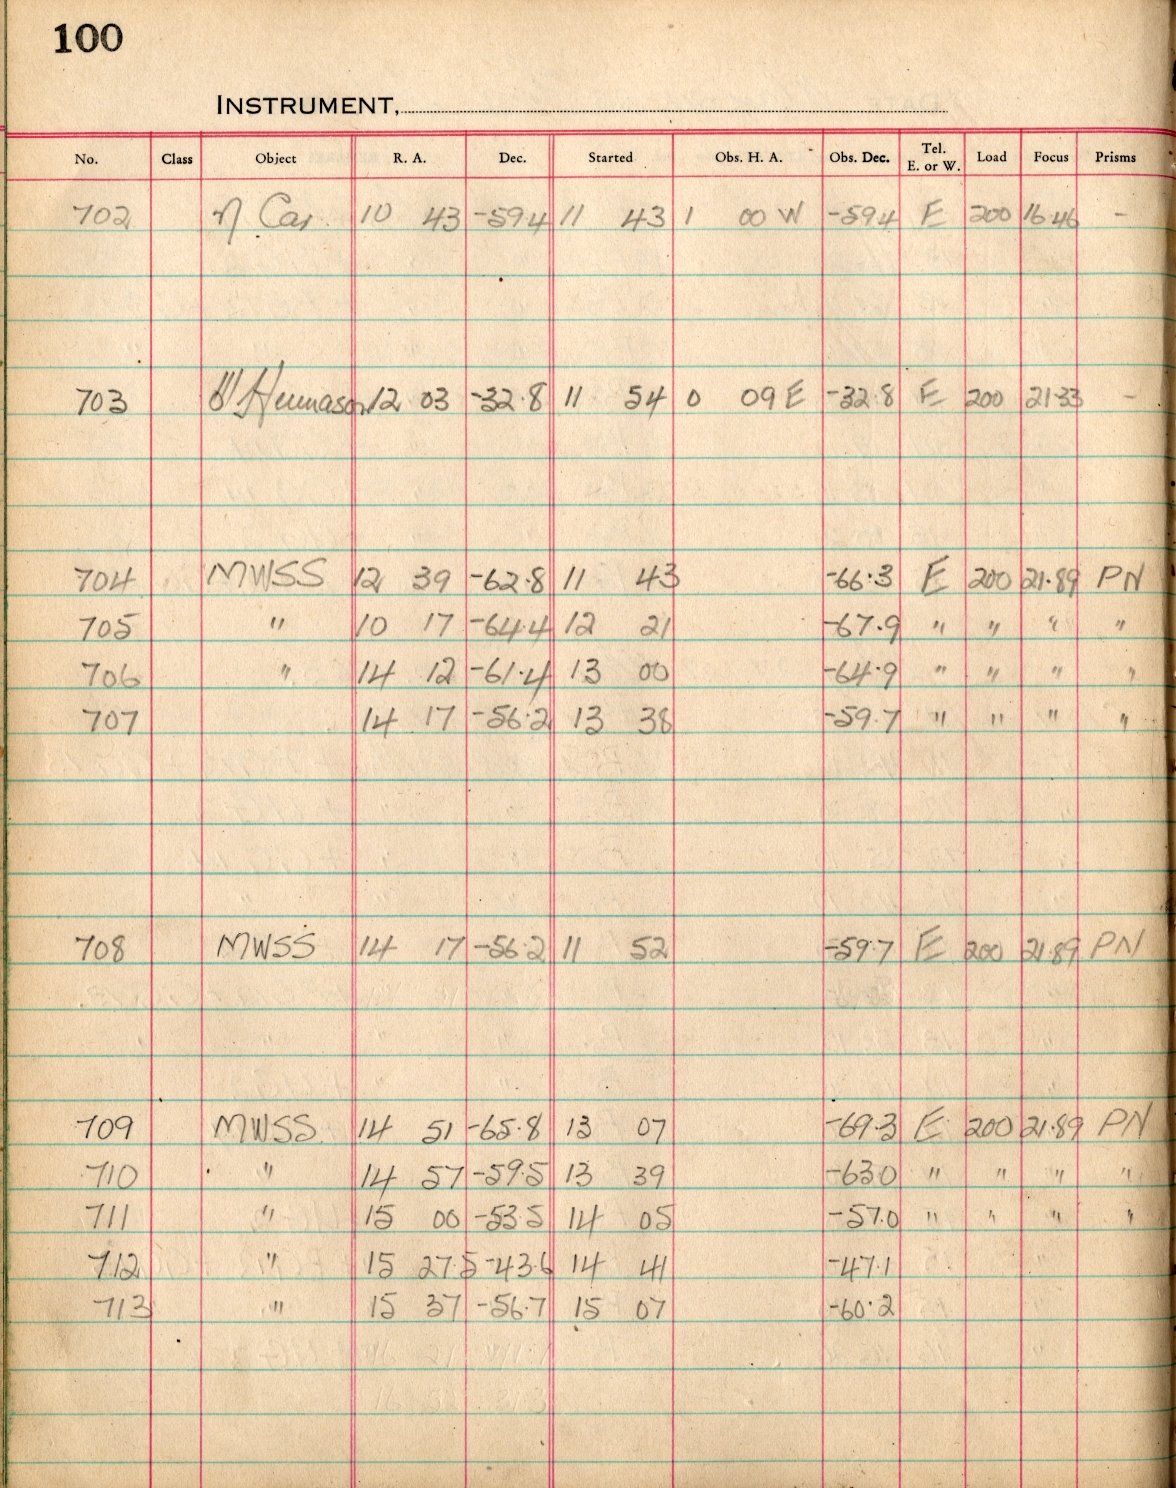 100
INSTRUMENT,
No. Class Object R. A. Dec. Started Obs. H. A. Obs. Dec. Tel. E. or W. Load Focus Prisms
702 η Car 10 43 -59.4 11 43 1 00 W -59.4 E 200 16.46 -
703 Humason 12 03 -32.8 11 54 0 09 E -32.8 E 200 21.33 -
704 MWSS 12 39 -62.8 11 43 -66.3 E 200 21.89 PN
705 " 10 17 -64.4 12 21 -67.9 " " " "
706 " 14 12 -61.4 13 00 -64.9 " " " "
707 14 17 -56.2 13 38 -59.7 " " " "
708 MWSS 14 17 -56.2 11 52 -59.7 E 200 21.89 PN
709 MWSS 14 51 -65.8 13 07 -69.3 E 200 21.89 PN
710 " 14 57 -59.5 13 39 -63.0 " " " "
711 " 15 00 -53.5 14 05 -57.0 " " " "
712 " 15 27.5 -43.6 14 41 -47.1
713 " 15 37 -56.7 15 07 -60.2